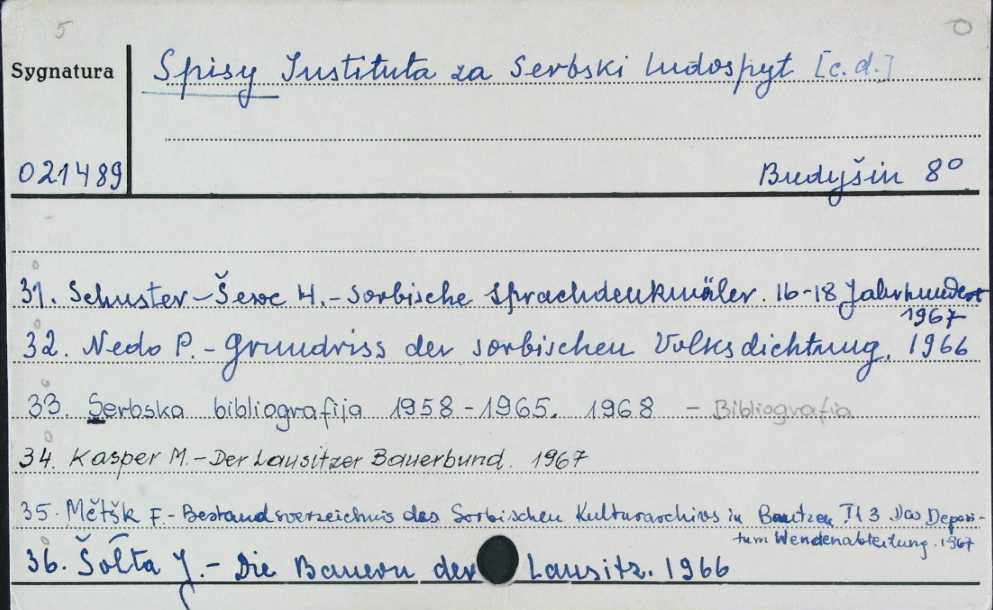 5 0
Sygnatura Spisy Instituta za Serbski ludospyt [c.d.]
021489 Budyšin 8°
31. Schuster-Šewc H. - Sorbische Sprachdenkmäler. 16-18 Jahrhundert
1967
32. Nedo P. - Grundriss der sorbischen Volksdichtung. 1966
33. Serbska bibliografija 1958-1965. 1968 - Bibliografia
34. Kasper M. - Der Lausitzer Bauerbund. 1967
35. Mětšk F. - Bestandsverzeichnis des Sorbischen Kulturarchivs in Bautzen Tl 3 Das Deposi-
tum Wendenabteilung. 1967
36. Šołta J. - Die Bauern der Lausitz. 1966